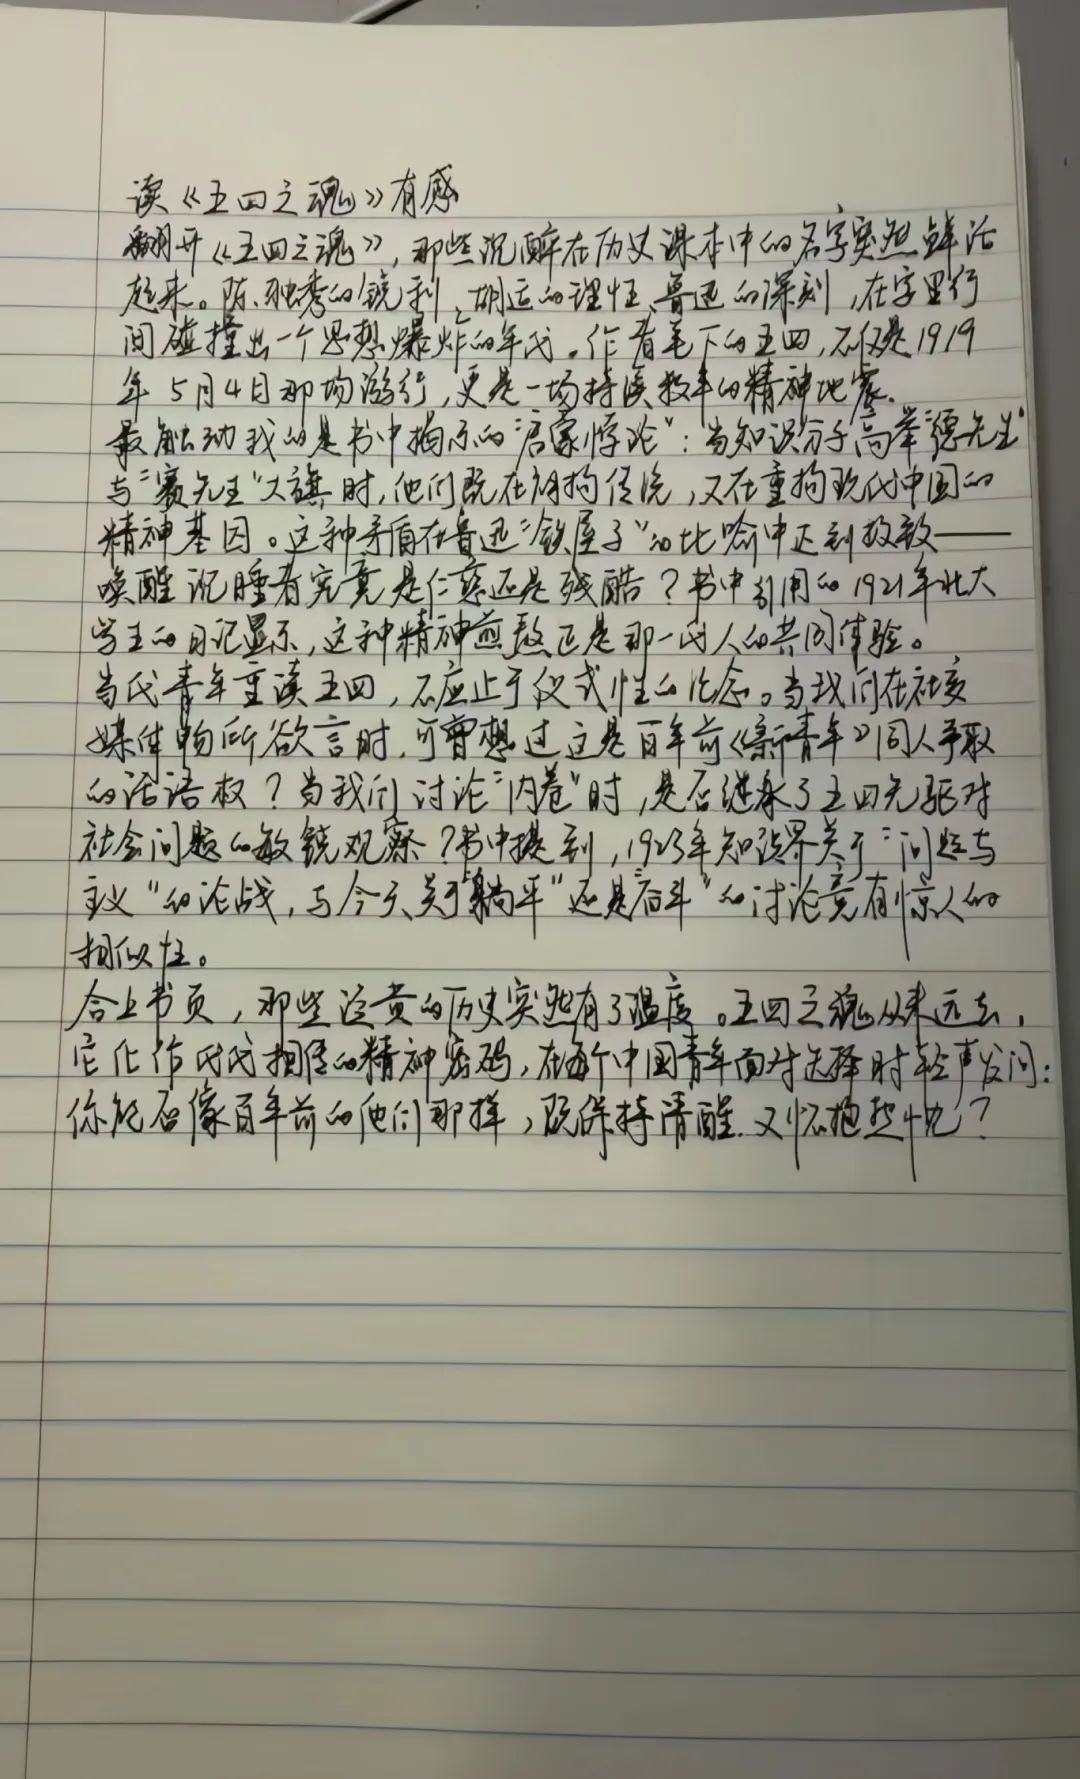 读《五四之魂》有感
翻开《五四之魂》，那些沉醉在历史课本中的名字突然鲜活
起来。陈独秀的锐利、胡适的理性、鲁迅的深刻，在字里行
间碰撞出一个思想爆炸的年代。作者笔下的五四，不仅是1919
年5月4日那场游行，更是一场持续数年的精神地震。
最触动我的是书中揭示的"启蒙悖论"：当知识分子高举"德先生"
与"赛先生"大旗时，他们既在解构传统，又在重构现代中国的
精神基因。这种矛盾在鲁迅"铁屋子"的比喻中达到极致——
唤醒沉睡者究竟是仁慈还是残酷？书中引用的1921年北大
学生的日记显示，这种精神煎熬正是那一代人的共同体验。
当代青年重读五四，不应止于仪式性的纪念。当我们在社交
媒体畅所欲言时，可曾想过这是百年前《新青年》同人争取
的话语权？当我们讨论"内卷"时，是否继承了五四先驱对
社会问题的敏锐观察？书中提到，1923年知识界关于"问题与
主义"的论战，与今天关于"躺平"还是"奋斗"的讨论竟有惊人的
相似性。
合上书页，那些泛黄的历史突然有了温度。五四之魂从未远去，
它化作代代相传的精神密码，在每个中国青年面对选择时轻声发问：
你能否像百年前的他们那样，既保持清醒，又怀抱热忱？